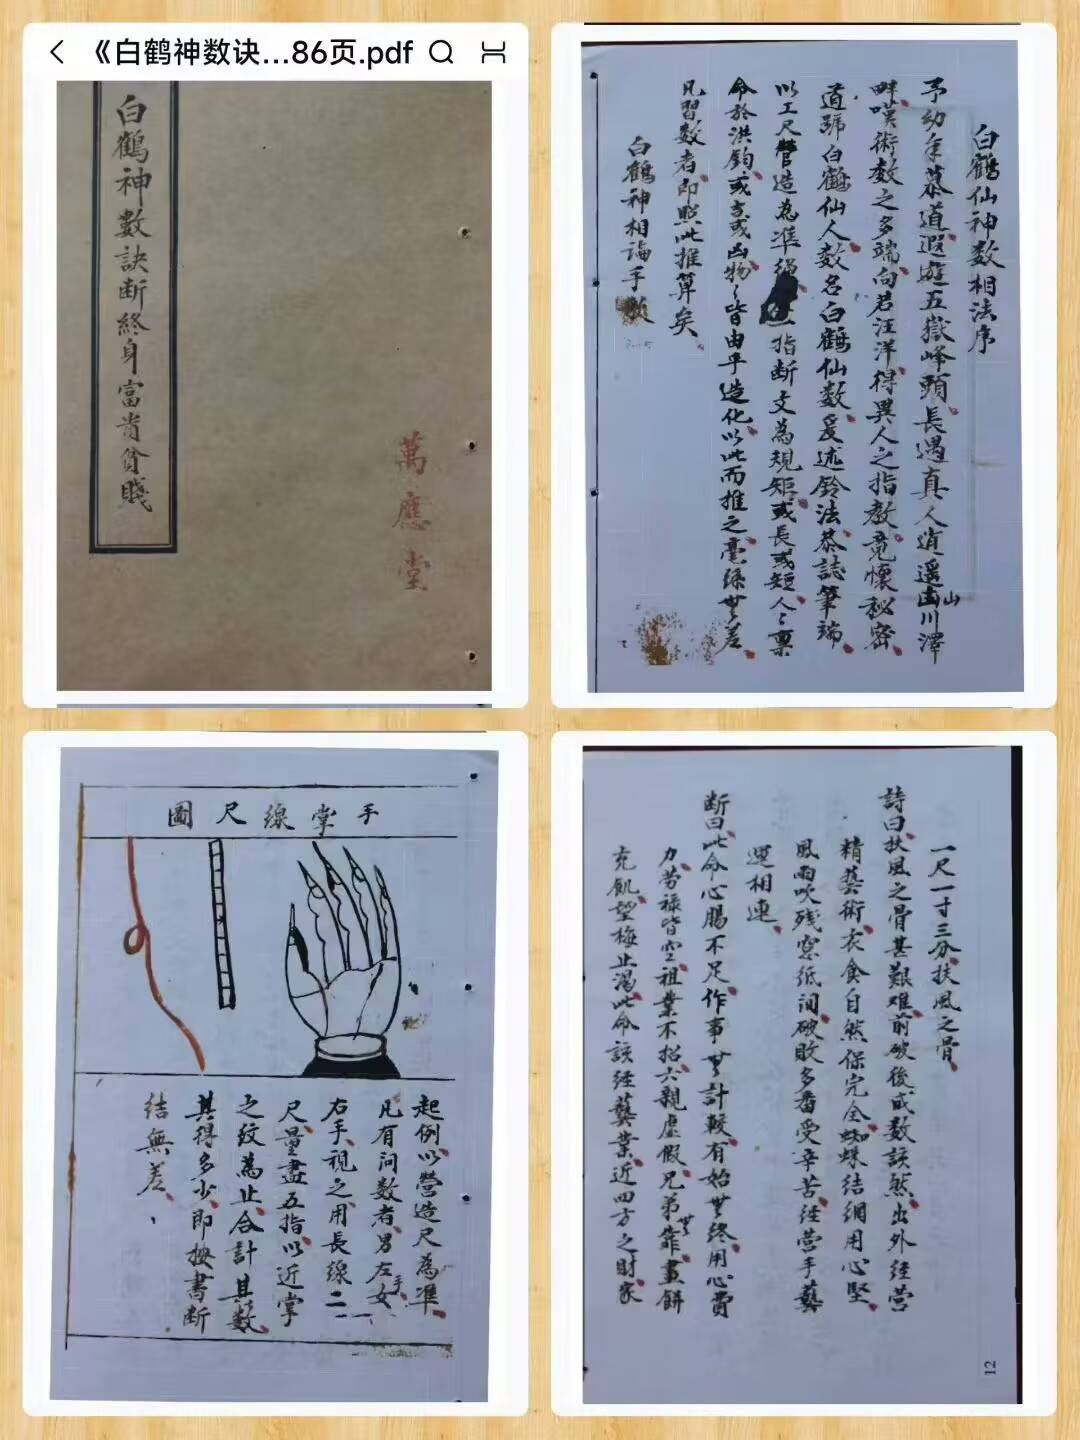 《白鹤神数诀...86页.pdf
白鶴神數訣断終身富貴貧賤
萬應堂
白鶴仙神数相法序
予幼年慕道遐遊五嶽峰頭長遇真人逍遥山川澤
畔嘆術数之多端向若汪洋得異人之指教竟懷秘密
道號白鶴仙人数名白鶴仙数爰述鈴法恭誌筆端
以工尺營造為准繩一指断文為規矩或長或短人〻禀
命於洪鈞或吉或凶物〻皆由乎造化以此而推之毫絲無差
凡習数者即照此推算矣
白鶴神相論手
手掌線尺圖
起例以營造尺為準
凡有问数者男左手女
右手視之用長線二一
尺量盡五指以近掌
之紋為止合計其数
其得多少即按書断
結無差
一尺一寸三分扶風之骨
詩曰扶風之骨甚艱难前破後成数該然出外经营
精藝術衣食自然保完全蜘蛛结網用心堅
風雨吹残窓纸洞破敗多番受辛苦经营手藝
運相連
断曰此命心腸不足作事無計較有始無终用心費
力劳禄皆空祖業不招六親虚假兄弟無靠畫餅
充飢望梅止渴此命该经藝業近四方之財家
12